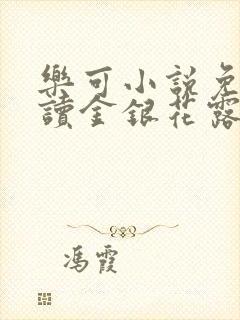 樂可小說免
讀金銀花露
馮霞